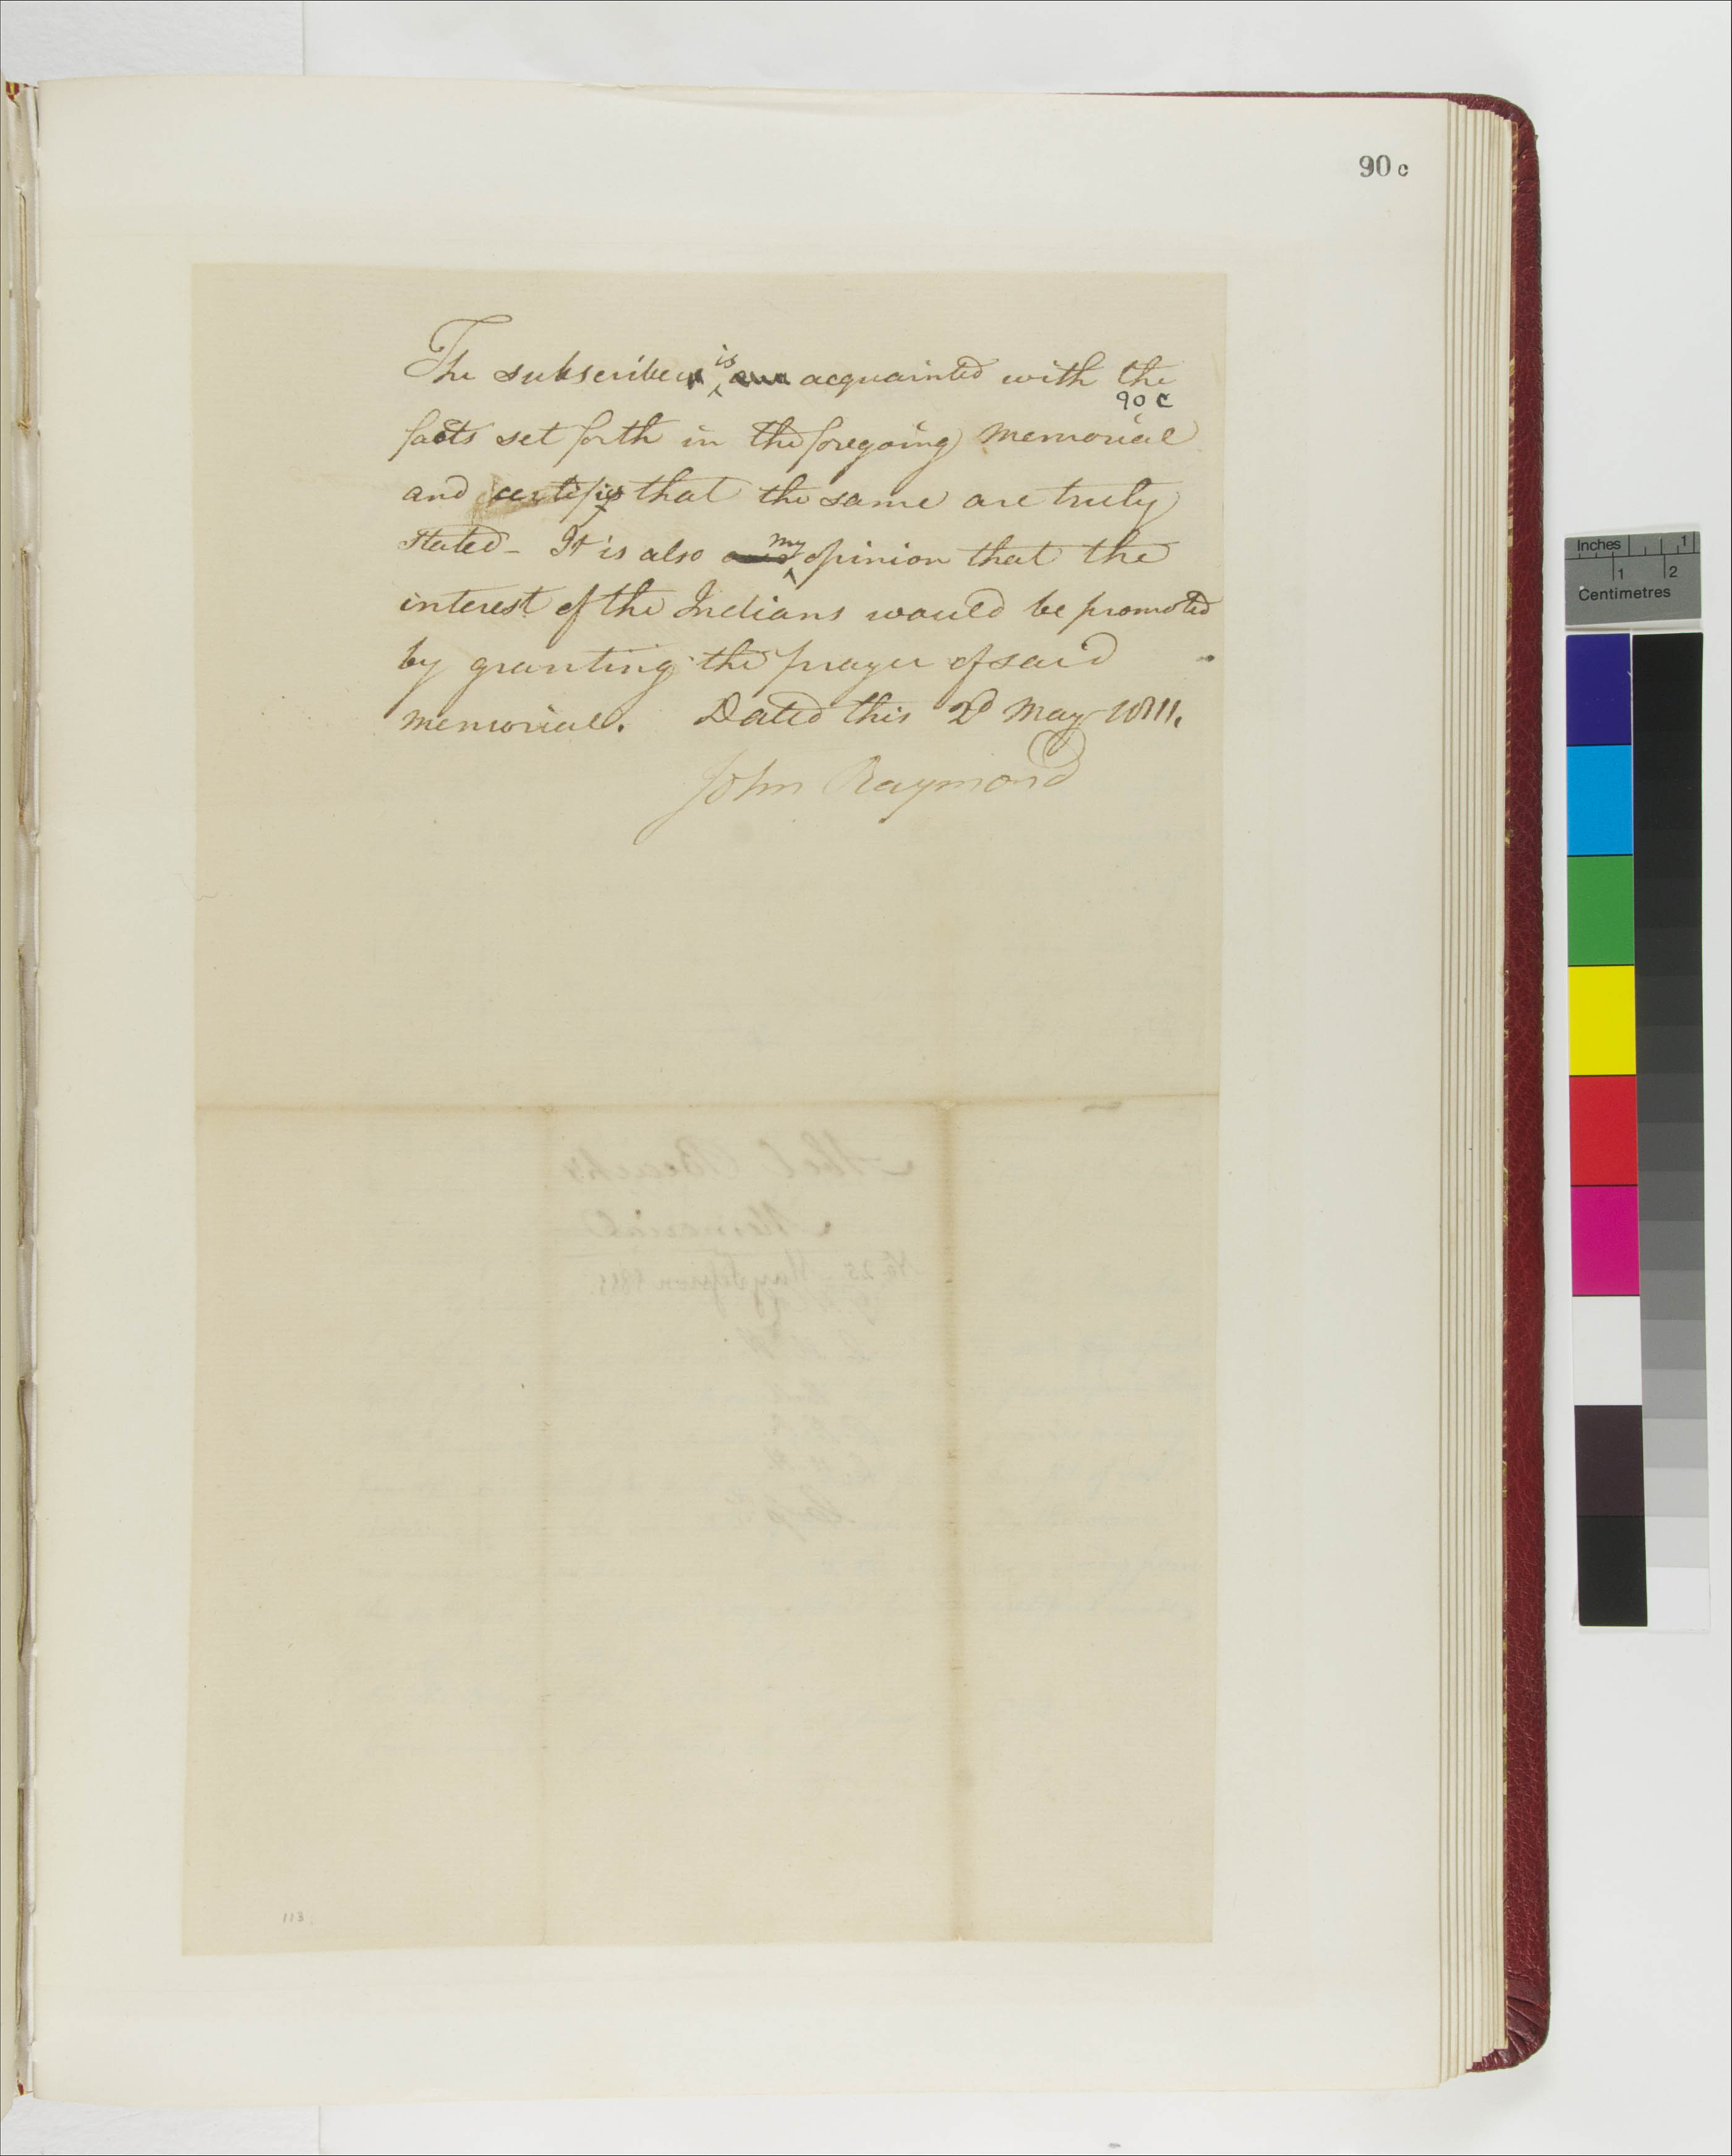 90 c
The subscriber is acquainted with the
90 C
facts set forth in the foregoing memorial
and certifies that the same are truly
stated - It is also my opinion that the
interest of the Indians would be promoted
by granting the prayer of said
memorial. Dated this 2d May 1811.
John Raymond
Abel Beach's
Memorial
No 25 May Session 1811
113
Inches 1
1 2
Centimetres